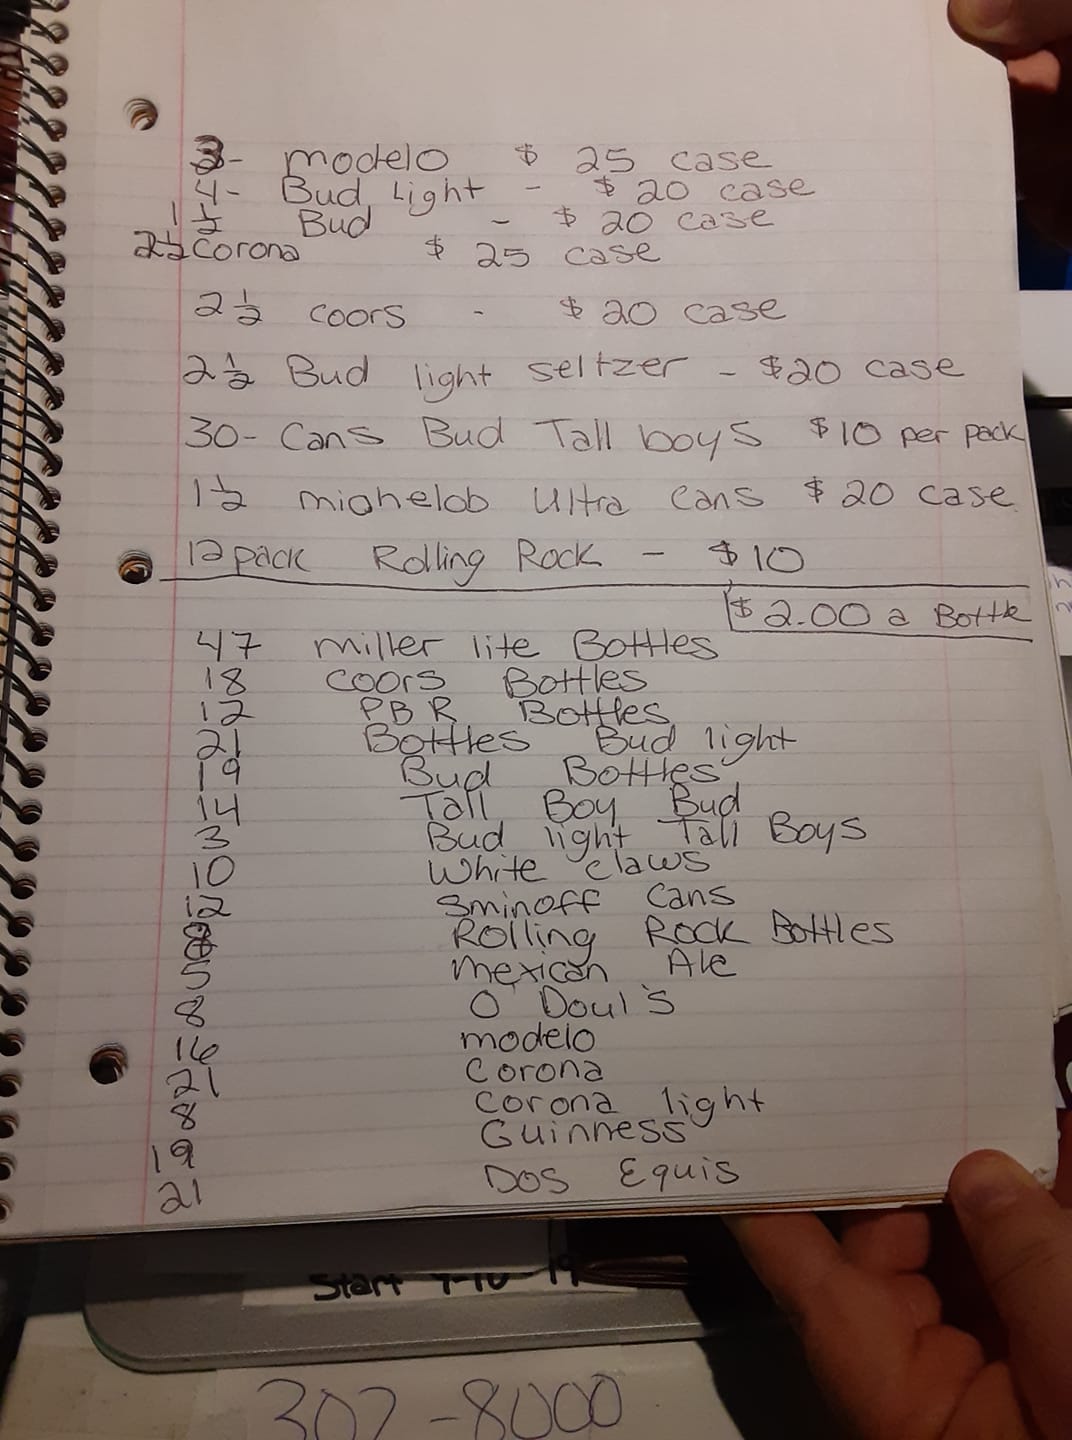 3- modelo $ 25 case
4- Bud Light - $ 20 case
1 1/2 Bud - $ 20 case
2 1/2 Corona $ 25 case
2 1/2 coors - $ 20 case
2 1/2 Bud light seltzer - $20 case
30- Cans Bud Tall boys $10 per pack
1 1/2 michelob Ultra Cans $20 case
12 pack Rolling Rock - $10
$2.00 a Bottle
47 miller lite Bottles
18 coors Bottles
12 PBR Bottles
21 Bottles Bud light
19 Bud Bottles
14 Tall Boy Bud
3 Bud light Tall Boys
10 White claws
12 Sminoff Cans
Rolling Rock Bottles
5 mexican Ale
8 O Doul's
16 modelo
21 Corona
8 Corona light
19 Guinness
21 Dos Equis
Start 19
307-8000